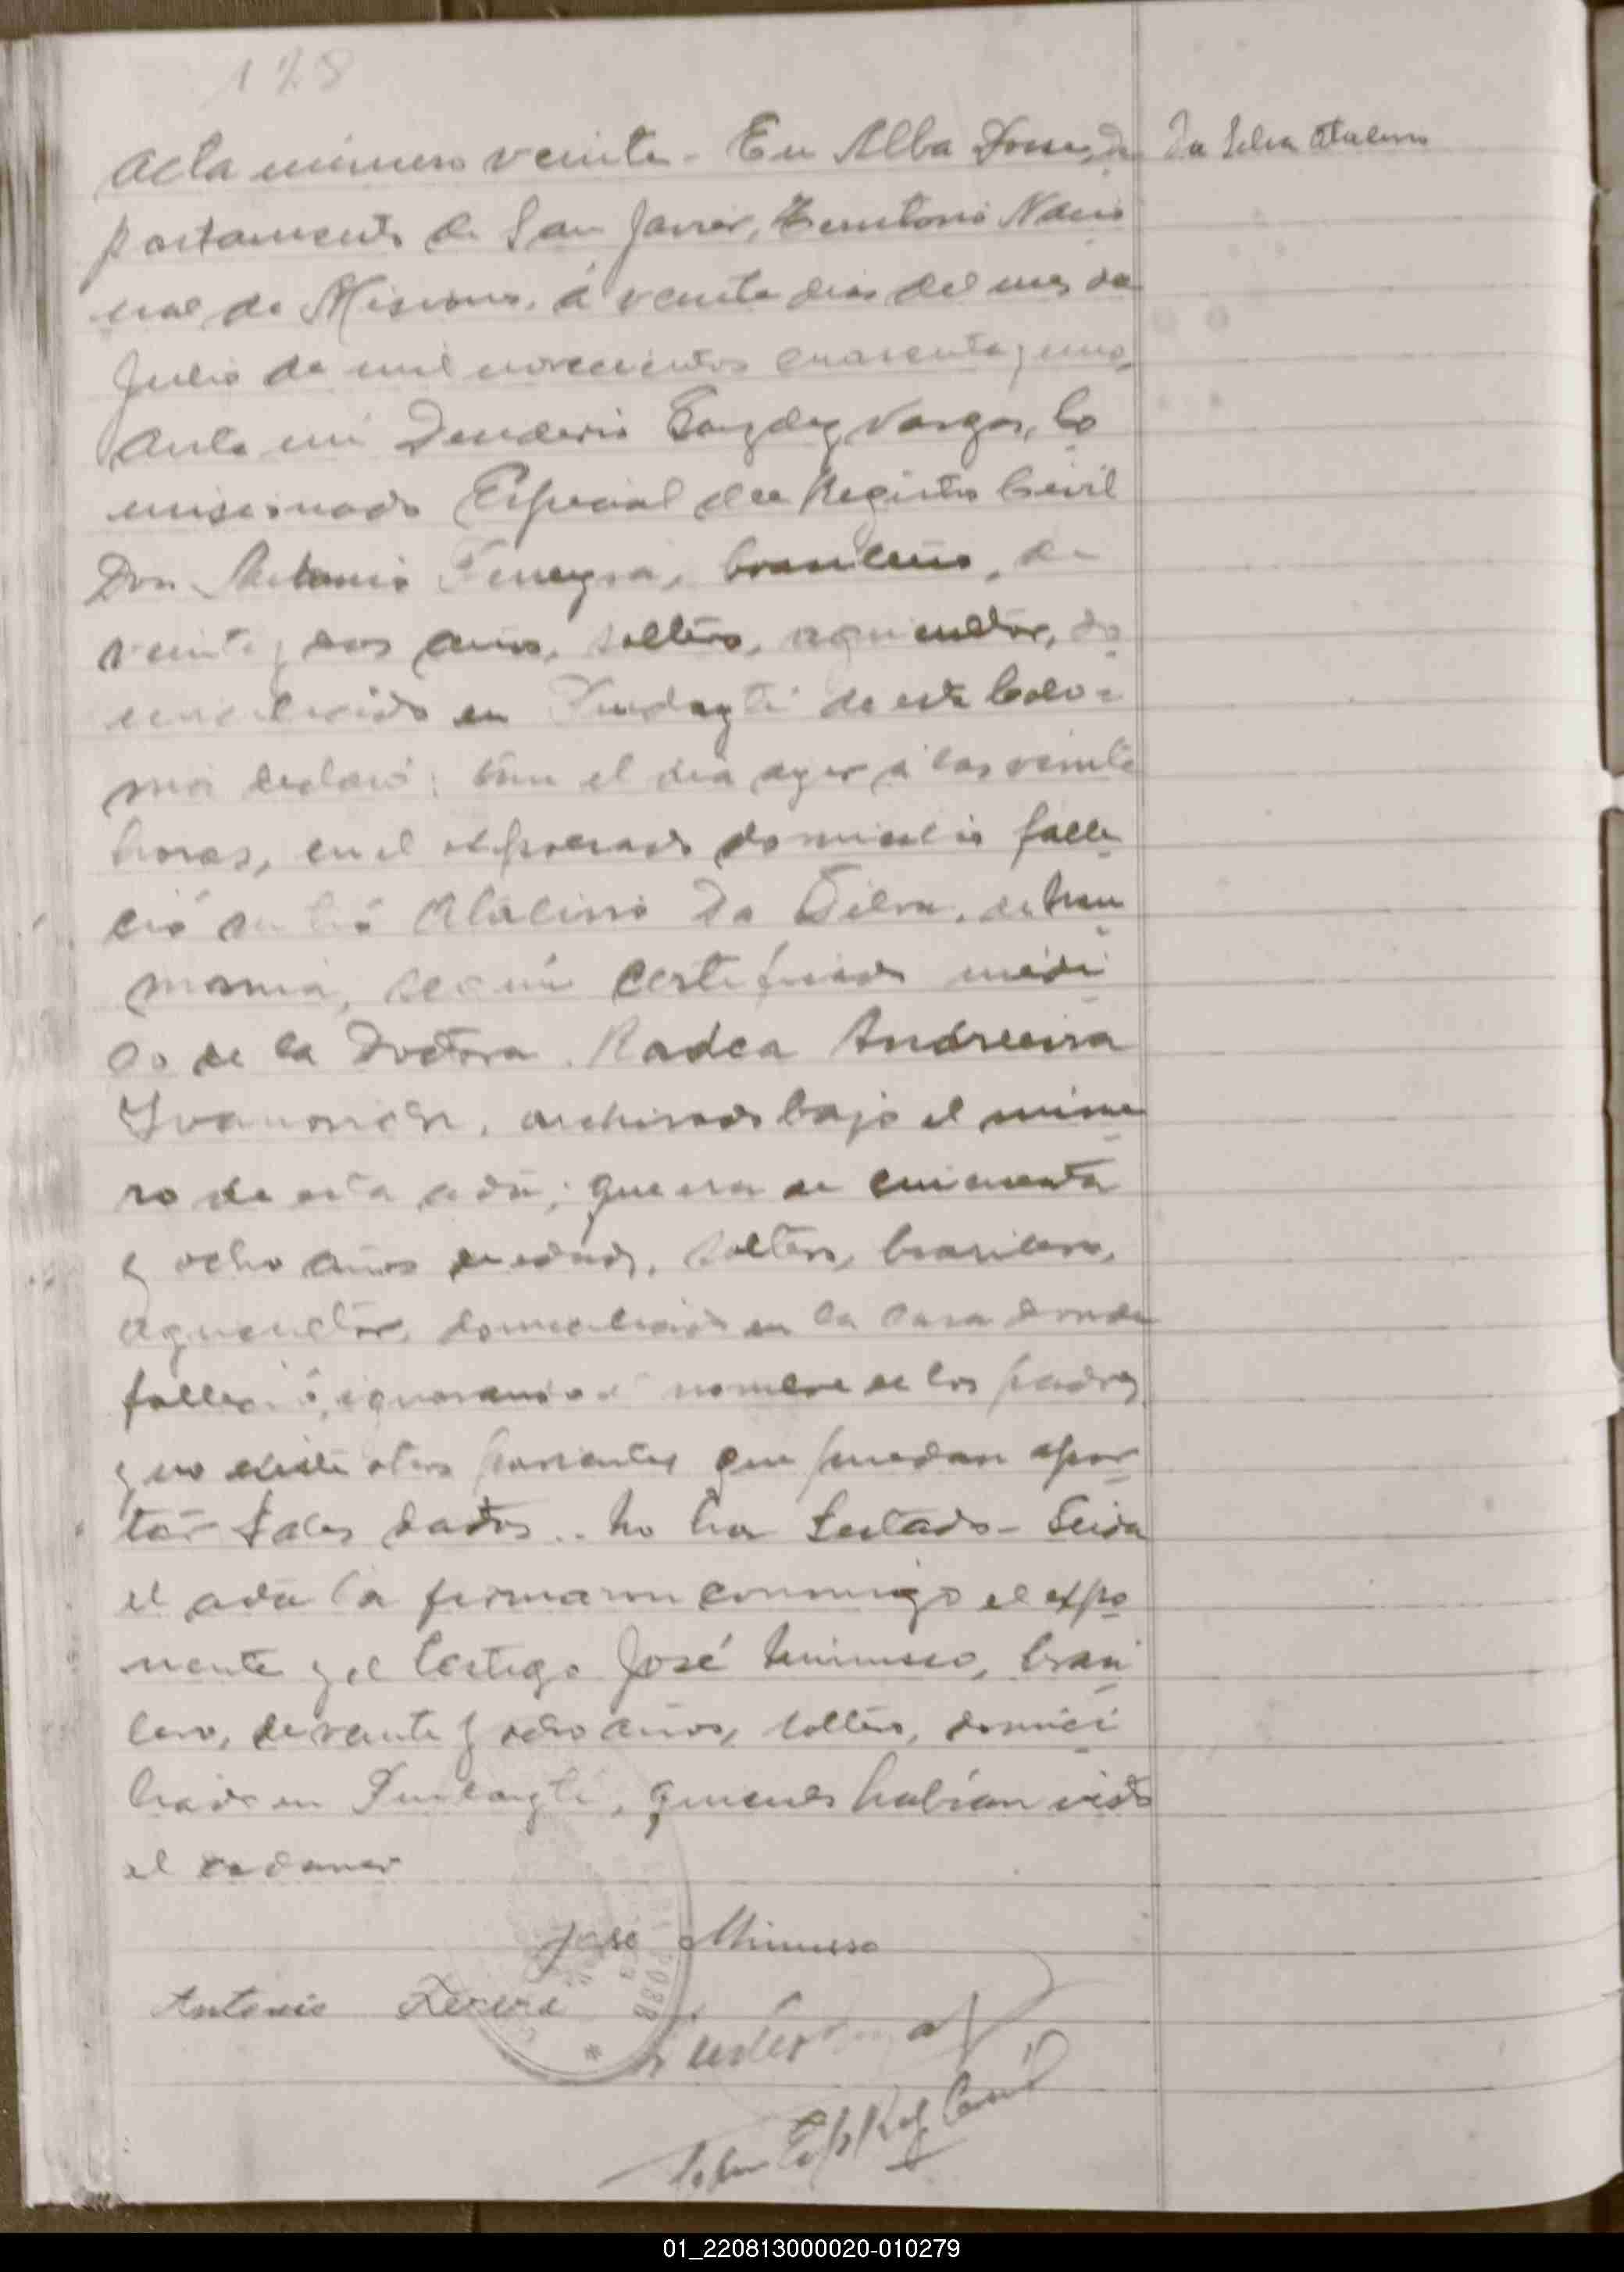 128
Da Silva Atalino
Acta número veinte. En Alba Posse, De
partamento de San Javier, Territorio Nacio
nal de Misiones, á veinte dias del mes de
Julio de mil novecientos cuarenta y uno,
Ante mi Vargas, Co
misionado Especial del Registro Civil
Don Antonio Ferreyra, brasileño, de
veinte y dos años, soltero, agricultor, do
miciliado en Pindayti de esta Colo
nia declaró: Que el dia ayer á las veinte
horas, en el expresado domicilio falle
ció su tio Atalino Da Silva, de
según certificado médi
co de la Doctora Radca Andreeva
Ivanovich, archivado bajo el núme
ro de esta acta; que era de cincuenta
y ocho años de edad, soltero, brasilero,
agricultor, domiciliado en la casa donde
falleció, ignorando el nombre de los padres
y no existe otros parientes que puedan apor
tar tales datos.. No ha testado - Leida
el acta la firmaron conmigo el expo
nente y el testigo José Minusso, brasi
lero, de veinte y ocho años, soltero, domici
liado en Pindayti, quienes habían visto
el cadaver
José Minusso
Antonio
Esp Reg Civil
01_220813000020-010279